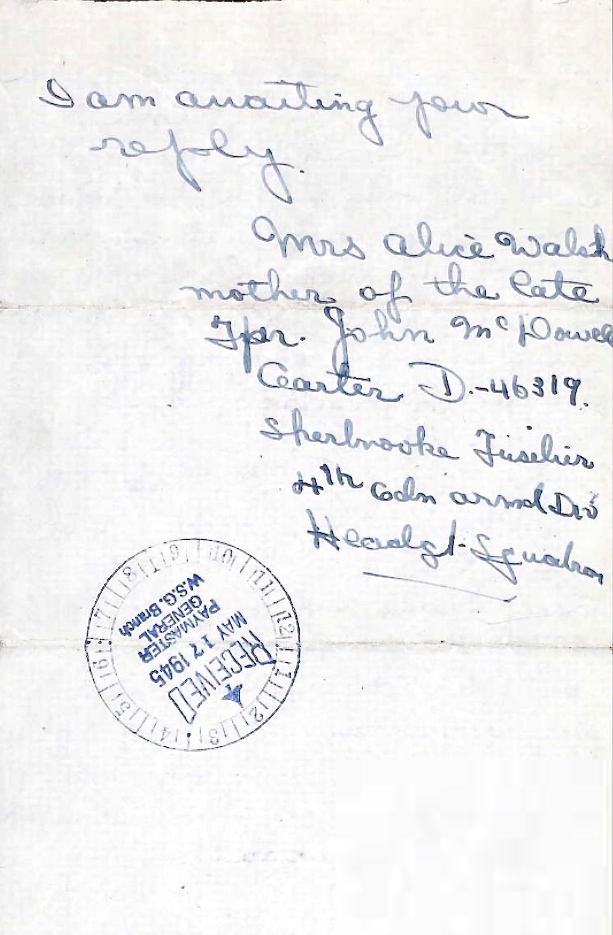 I am awaiting your
reply.
Mrs Alice Walsh
mother of the late
Tpr. John McDowell
Carter D.-46319.
Sherbrooke Fusilier
4th Cdn armd Div
Headqt. Squadron
RECEIVED
MAY 17 1945
PAYMASTER
GENERAL
W.S.G. Branch
1 2 3 4 5 6 7 8 9 10 11 12